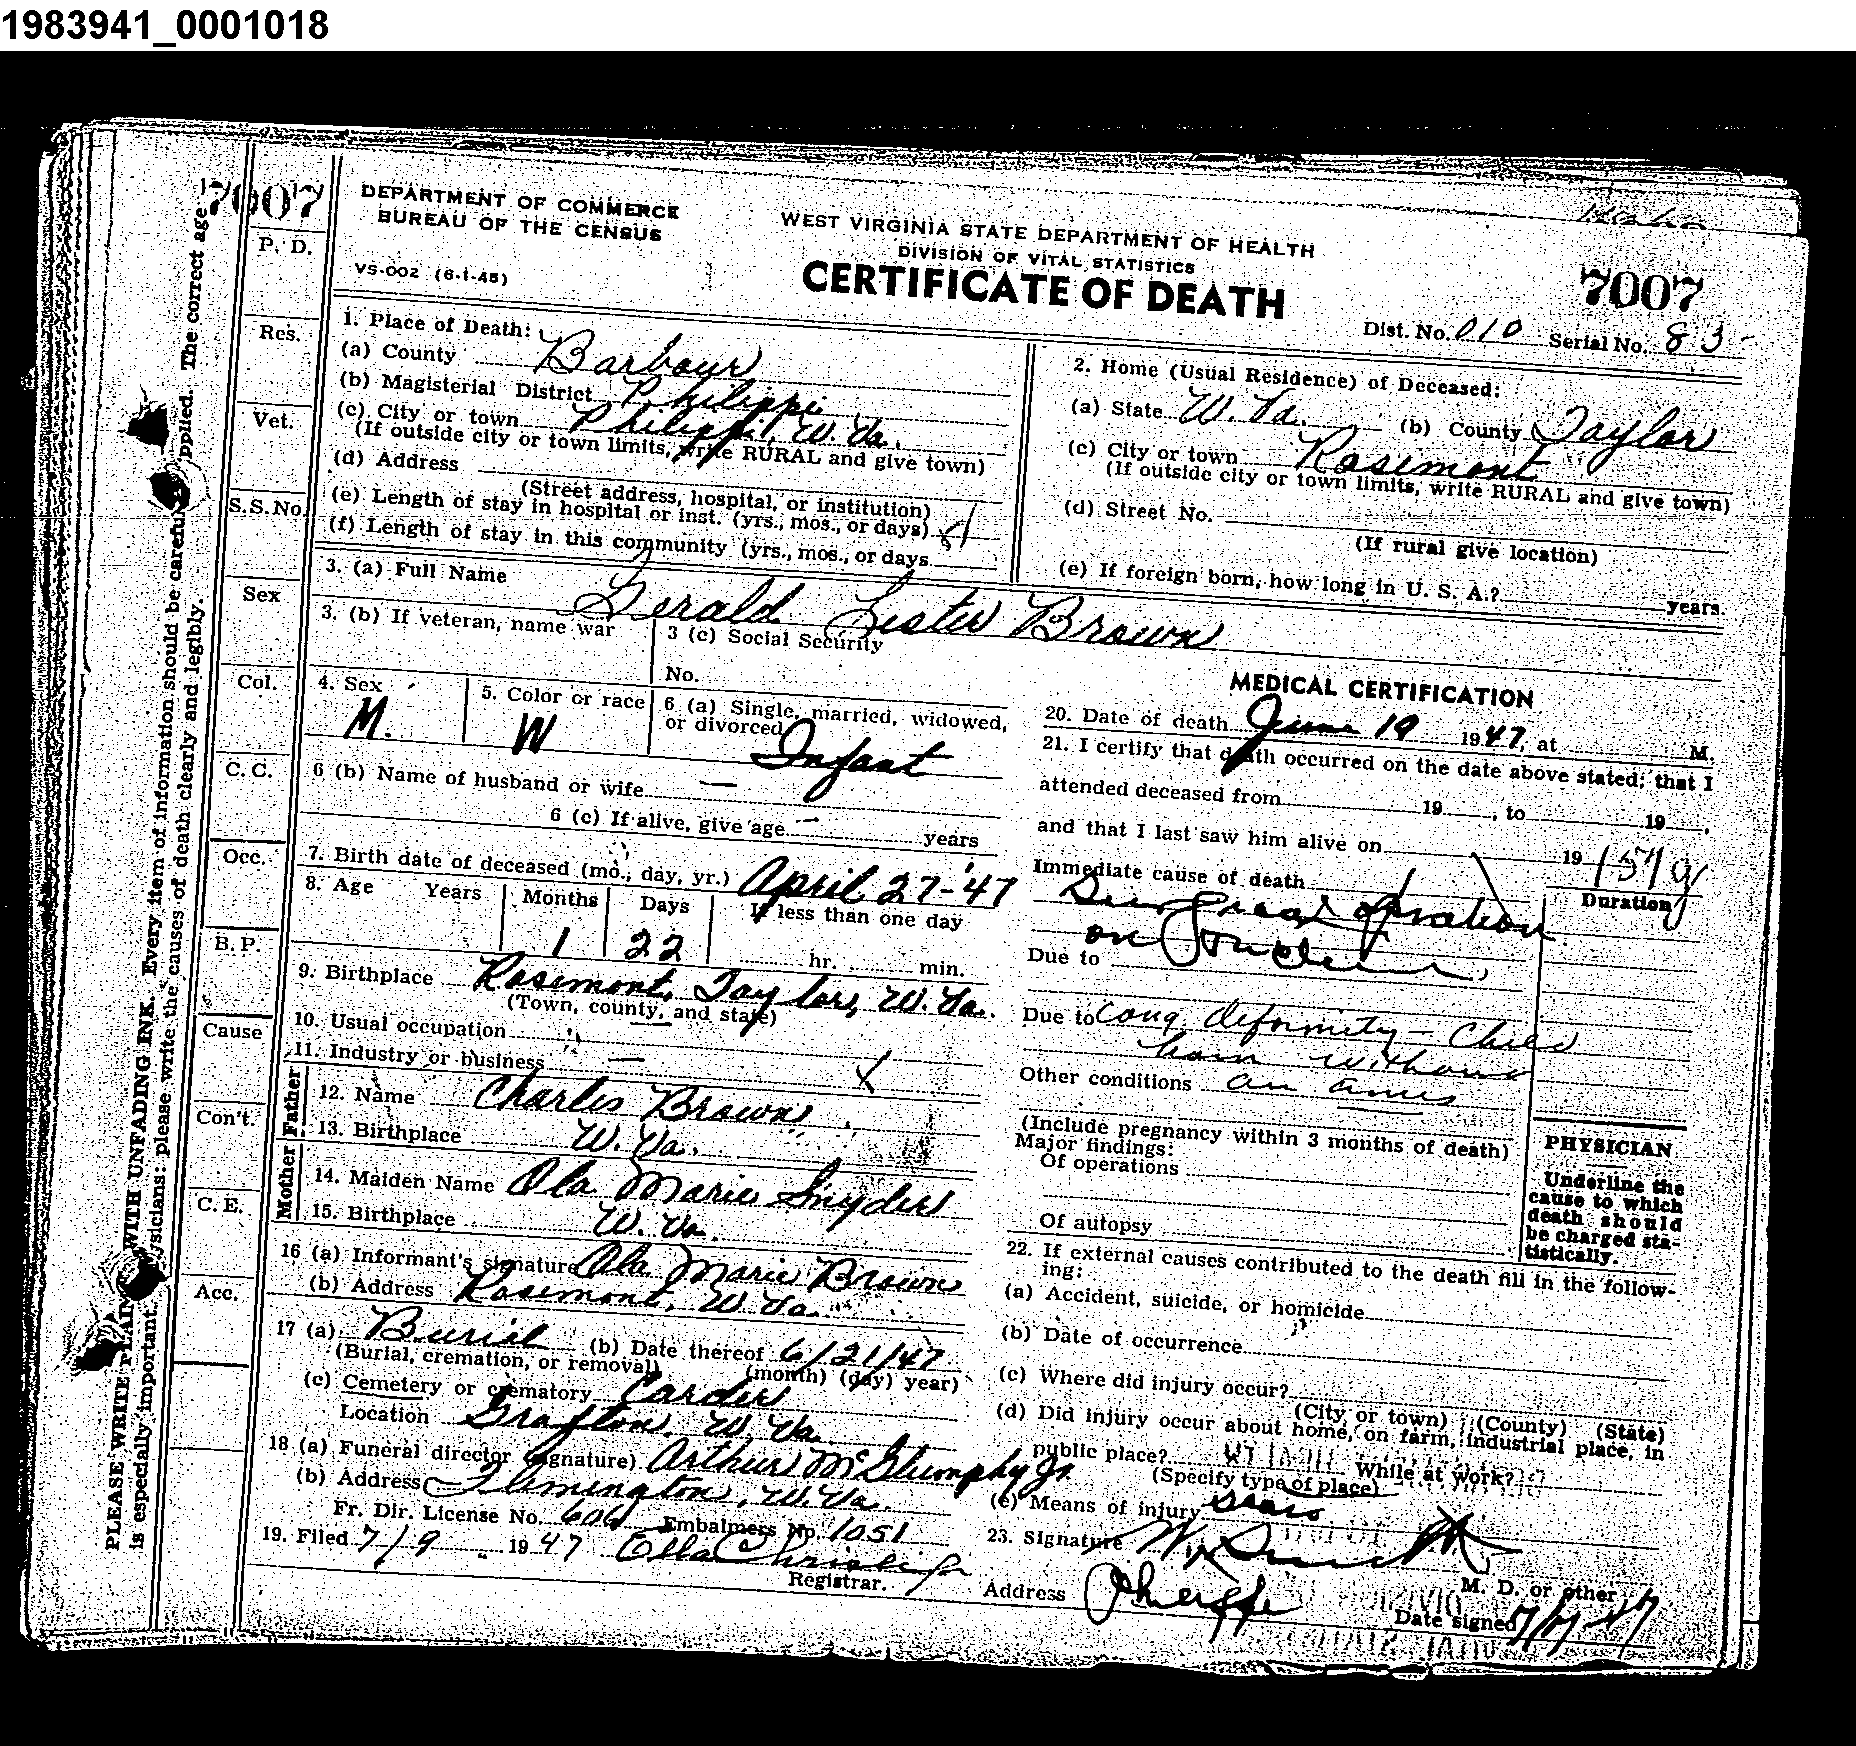 1983941_0001018
7007
DEPARTMENT OF COMMERCE
BUREAU OF THE CENSUS
VS-002 (6-1-45)
WEST VIRGINIA STATE DEPARTMENT OF HEALTH
DIVISION OF VITAL STATISTICS
CERTIFICATE OF DEATH
7007
Dist. No. 010 Serial No. 83
P. D.
Res.
Vet.
S.S. No.
Sex
Col.
C. C.
Occ.
B. P.
Cause
Con't.
C. E.
Acc.
PLEASE WRITE PLAIN WITH UNFADING INK. Every item of information should be carefu pplied. The correct age
is especially important. ysicians: please write the causes of death clearly and legibly.
1. Place of Death:
(a) County Barbour
(b) Magisterial District Philippi
(c) City or town Philippi, W. Va.
(If outside city or town limits, write RURAL and give town)
(d) Address
(Street address, hospital, or institution)
(e) Length of stay in hospital or inst. (yrs., mos., or days)
(f) Length of stay in this community (yrs., mos., or days
2. Home (Usual Residence) of Deceased:
(a) State W. Va. (b) County Taylor
(c) City or town Rosemont
(If outside city or town limits, write RURAL and give town)
(d) Street No.
(If rural give location)
(e) If foreign born, how long in U. S. A.? years.
3. (a) Full Name Gerald Lester Brown
3. (b) If veteran, name war
3 (c) Social Security
No.
4. Sex M.
5. Color or race W
6 (a) Single, married, widowed,
or divorced Infant
6 (b) Name of husband or wife —
6 (c) If alive, give age — years
7. Birth date of deceased (mo., day, yr.) April 27-'47
8. Age Years Months Days If less than one day
1 22 hr. min.
9. Birthplace Rosemont, Taylor, W. Va.
(Town, county, and state)
10. Usual occupation —
11. Industry or business —
Father
12. Name Charles Brown
13. Birthplace W. Va.
Mother
14. Maiden Name Ola Marie Snyder
15. Birthplace W. Va.
16 (a) Informant's signature Ola Marie Brown
(b) Address Rosemont, W. Va.
17 (a) Burial (b) Date thereof 6/21/47
(Burial, cremation, or removal) (month) (day) year)
(c) Cemetery or crematory Carder
Location Grafton, W. Va.
18 (a) Funeral director (signature) Arthur McGlumphy Jr.
(b) Address Flemington, W. Va.
Fr. Dir. License No. 606 Embalmers No. 1051
19. Filed 7/9 1947 Ella
Registrar.
MEDICAL CERTIFICATION
20. Date of death June 19 1947, at M.
21. I certify that death occurred on the date above stated; that I
attended deceased from 19 , to 19 ,
and that I last saw him alive on 19
Immediate cause of death
Duration
operation
on
Due to
Due to Cong deformity - Child
born without
Other conditions an anus
(Include pregnancy within 3 months of death)
Major findings:
Of operations
Of autopsy
PHYSICIAN
Underline the
cause to which
death should
be charged sta-
tistically.
22. If external causes contributed to the death fill in the follow-
ing:
(a) Accident, suicide, or homicide
(b) Date of occurrence
(c) Where did injury occur?
(City or town) (County) (State)
(d) Did injury occur about home, on farm, industrial place, in
public place? While at work?
(Specify type of place)
(e) Means of injury
23. Signature
M. D. or other
Address
Date signed 7/7/47